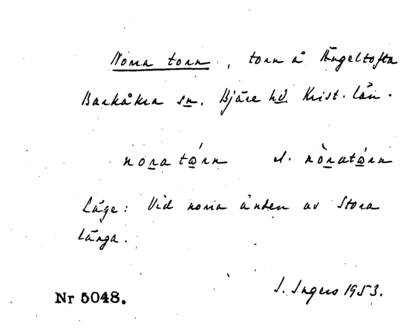 Norra torn, torn å Ängeltofta
Barkåkra sn. Bjäre hd. Krist. län.
nó̱rató̱rn el. nò̱rató̱rn
Läge: Vid norra änden av Stora
länga.
Nr 5048.
I. Ingers 1953.